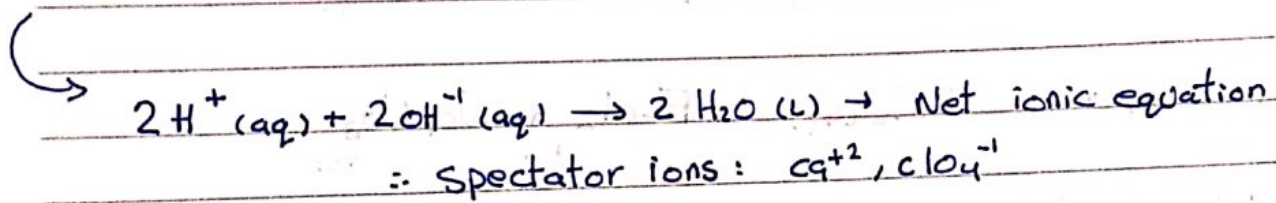 2H⁺ (aq) + 2OH⁻¹ (aq) → 2 H₂O (L) → Net ionic equation
∴ Spectator ions : Ca⁺², ClO₄⁻¹